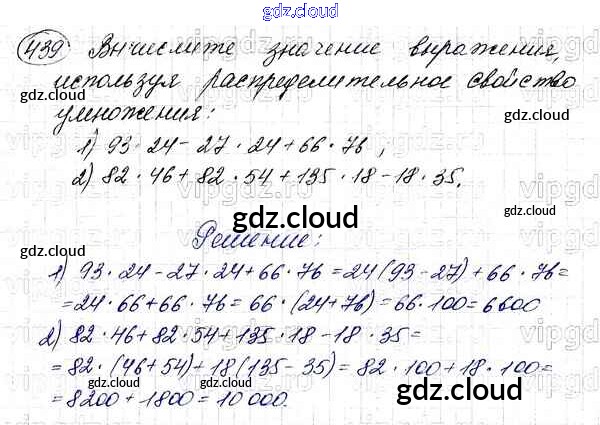 gdz.cloud
439. Вычислите значение выражения,
используя распределительное свойство
gdz.cloud gdz.cloud
умножения:
1) 93 · 24 - 27 · 24 + 66 · 76 ;
2) 82 · 46 + 82 · 54 + 135 · 18 - 18 · 35.
gdz.cloud gdz.cloud
gdz.cloud
Решение:
gdz.cloud gdz.cloud
1) 93 · 24 - 27 · 24 + 66 · 76 = 24 (93 - 27) + 66 · 76 =
= 24 · 66 + 66 · 76 = 66 · (24 + 76) = 66 · 100 = 6600
2) 82 · 46 + 82 · 54 + 135 · 18 - 18 · 35 =
= 82 · (46 + 54) + 18 (135 - 35) = 82 · 100 + 18 · 100 =
gdz.cloud gdz.cloud
= 8200 + 1800 = 10 000.
gdz.cloud